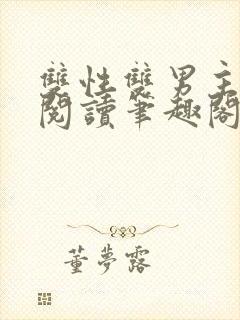 雙性雙男主
閱讀筆趣閣
董夢露